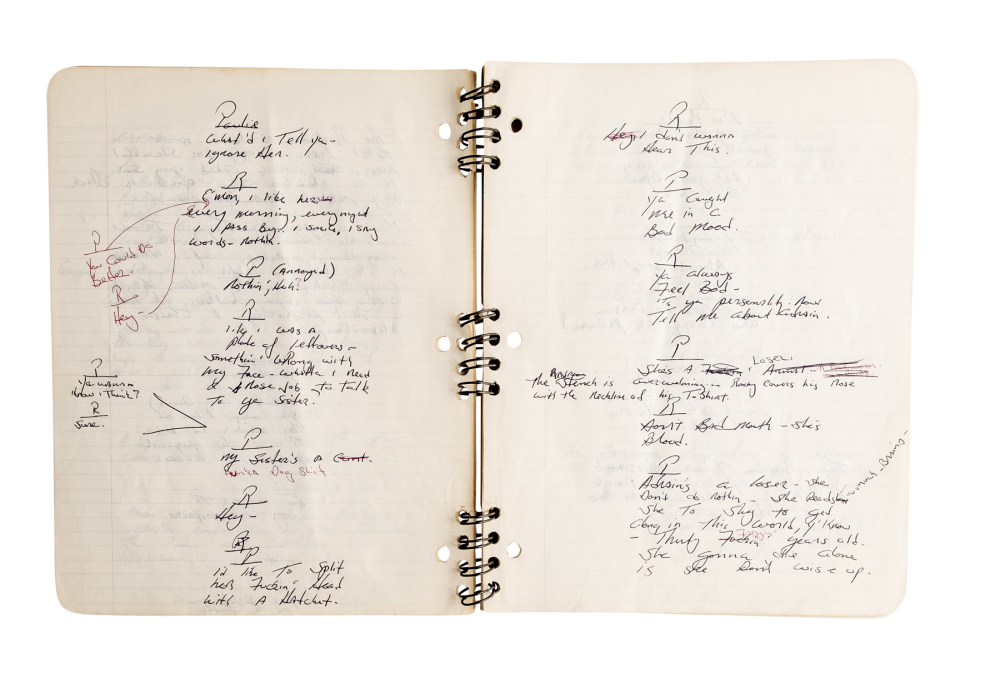 Paulie
What'd i Tell ya-
ignore Her.
R
C'mon, i like her
every morning, every night
i pass By. i smile, i say
words - nothin.
P
You Could Do
Better.
R
Hey-
P (Annoyed)
Nothin', Huh?
R
like i was a
plate of leftovers -
somethin' wrong with
my Face - Whatta i need
a Nose Job to talk
to ya sister.
P
Ya wanna
know i Think?
R
Sure.
P
my Sister's a Cunt.
Dog Shit.
R
Hey-
P
i'd like To Split
her Fuckin' Head
with A Hatchet.
R
Hey, i don't wanna
Hear This.
P
Ya Caught
me in a
Bad Mood.
R
Ya always
Feel Bad -
it's ya personality. Now
Tell me about
P
She's A Loser!
the Stench is overwelming... Rocky Covers his Nose
with the Neckline of his T-Shirt.
R
Don't Bad Mouth - She's
Blood.
P
Adrain's a loser - she
Don't do nothin - she Reads
too much - Brainy -
She To Shy to get
along in This World, Y'know
- Thirty Fuckin' years old.
She gonna Die Alone
is she Don't wise up.